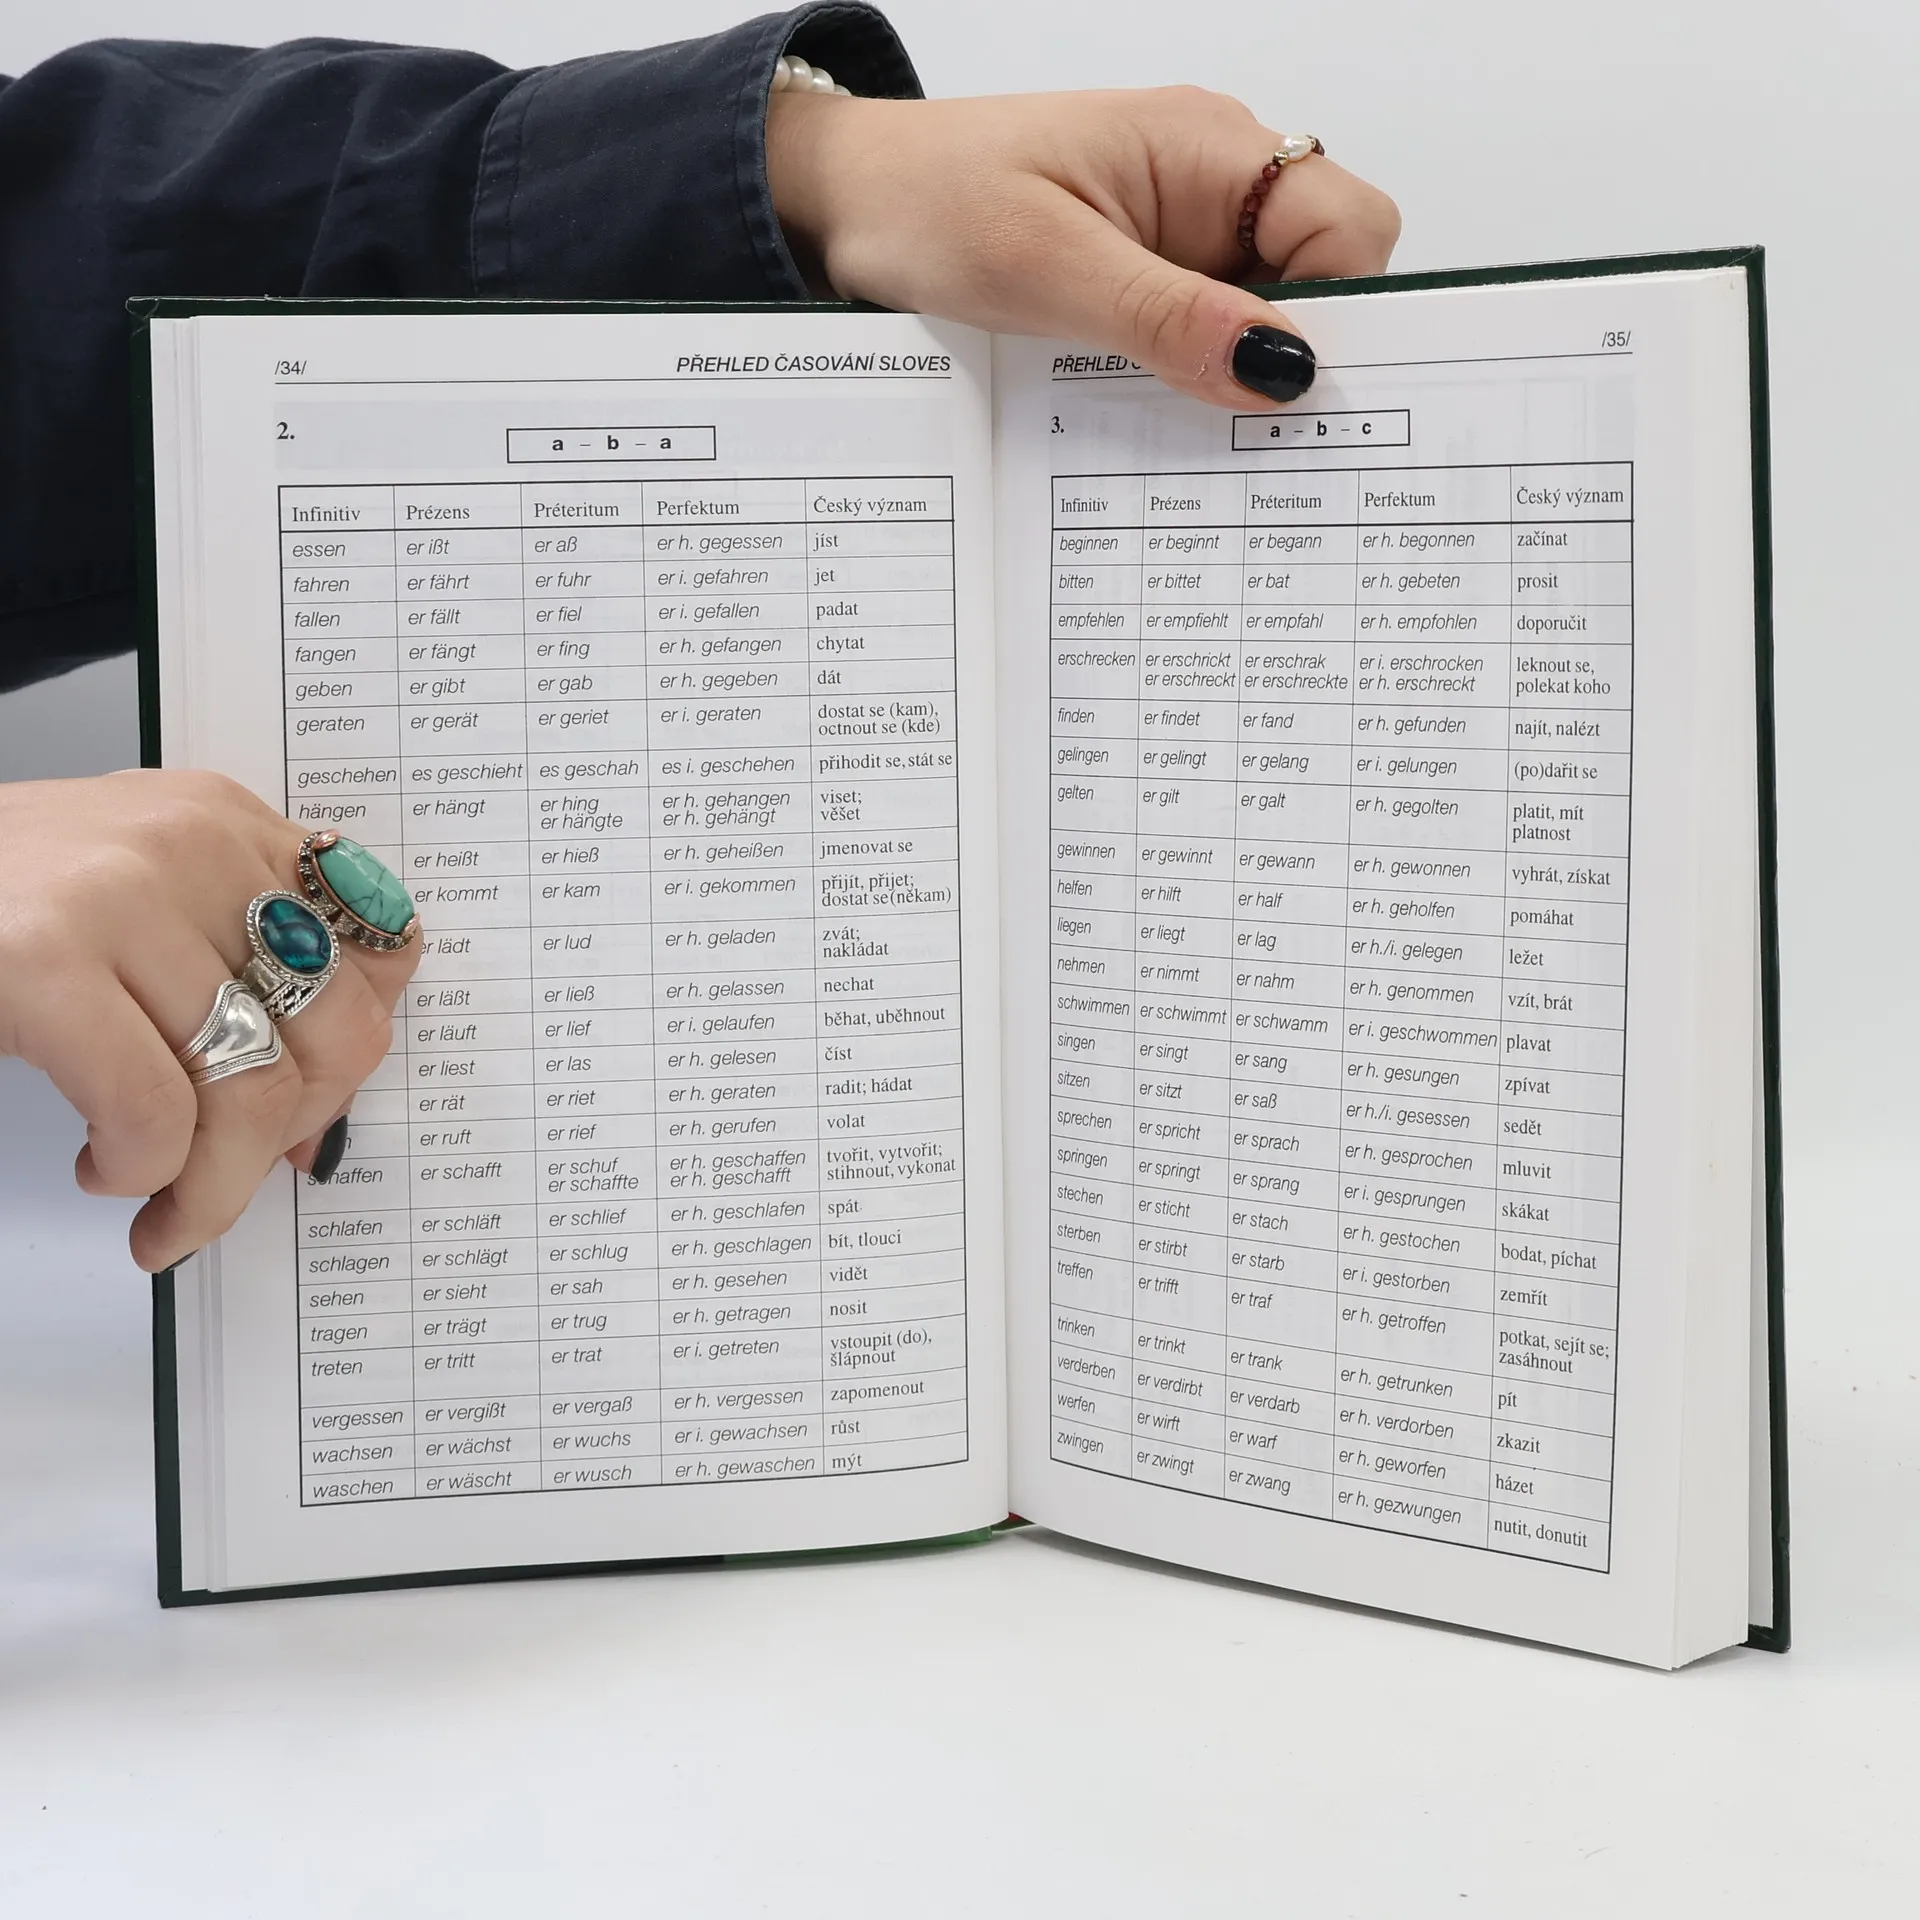 /34/ PŘEHLED ČASOVÁNÍ SLOVES
2.
a – b – a
Infinitiv Prézens Préteritum Perfektum Český význam
essen er ißt er aß er h. gegessen jíst
fahren er fährt er fuhr er i. gefahren jet
fallen er fällt er fiel er i. gefallen padat
fangen er fängt er fing er h. gefangen chytat
geben er gibt er gab er h. gegeben dát
geraten er gerät er geriet er i. geraten dostat se (kam),
octnout se (kde)
geschehen es geschieht es geschah es i. geschehen přihodit se, stát se
hängen er hängt er hing er h. gehangen viset;
er hängte er h. gehängt věšet
er heißt er hieß er h. geheißen jmenovat se
er kommt er kam er i. gekommen přijít, přijet;
dostat se (někam)
er lädt er lud er h. geladen zvát;
nakládat
er läßt er ließ er h. gelassen nechat
er läuft er lief er i. gelaufen běhat, uběhnout
er liest er las er h. gelesen číst
er rät er riet er h. geraten radit; hádat
er ruft er rief er h. gerufen volat
schaffen er schafft er schuf er h. geschaffen tvořit, vytvořit;
er schaffte er h. geschafft stihnout, vykonat
schlafen er schläft er schlief er h. geschlafen spát
schlagen er schlägt er schlug er h. geschlagen bít, tlouci
sehen er sieht er sah er h. gesehen vidět
tragen er trägt er trug er h. getragen nosit
treten er tritt er trat er i. getreten vstoupit (do),
šlápnout
vergessen er vergißt er vergaß er h. vergessen zapomenout
wachsen er wächst er wuchs er i. gewachsen růst
waschen er wäscht er wusch er h. gewaschen mýt
PŘEHLED /35/
3.
a – b – c
Infinitiv Prézens Préteritum Perfektum Český význam
beginnen er beginnt er begann er h. begonnen začínat
bitten er bittet er bat er h. gebeten prosit
empfehlen er empfiehlt er empfahl er h. empfohlen doporučit
erschrecken er erschrickt er erschrak er i. erschrocken leknout se,
er erschreckt er erschreckte er h. erschreckt polekat koho
finden er findet er fand er h. gefunden najít, nalézt
gelingen er gelingt er gelang er i. gelungen (po)dařit se
gelten er gilt er galt er h. gegolten platit, mít
platnost
gewinnen er gewinnt er gewann er h. gewonnen vyhrát, získat
helfen er hilft er half er h. geholfen pomáhat
liegen er liegt er lag er h./i. gelegen ležet
nehmen er nimmt er nahm er h. genommen vzít, brát
schwimmen er schwimmt er schwamm er i. geschwommen plavat
singen er singt er sang er h. gesungen zpívat
sitzen er sitzt er saß er h./i. gesessen sedět
sprechen er spricht er sprach er h. gesprochen mluvit
springen er springt er sprang er i. gesprungen skákat
stechen er sticht er stach er h. gestochen bodat, píchat
sterben er stirbt er starb er i. gestorben zemřít
treffen er trifft er traf er h. getroffen potkat, sejít se;
zasáhnout
trinken er trinkt er trank er h. getrunken pít
verderben er verdirbt er verdarb er h. verdorben zkazit
werfen er wirft er warf er h. geworfen házet
zwingen er zwingt er zwang er h. gezwungen nutit, donutit